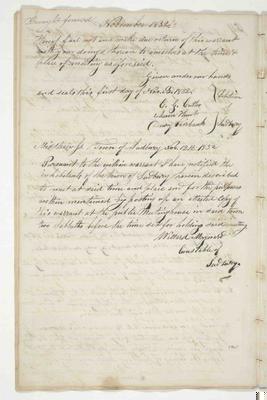 Brought forward November 1852
Fail not and make due return of this warrant
with your doings thereon to ourselves at the time &
place of meeting as aforesaid.
Given under our hands
and seals this first day of Nov. 1852.
Selectmen
of
Sudbury
Middlesex ss. Town of Sudbury Nov. 1852
Pursuant to the within warrant I have notified the
inhabitants of the town of Sudbury herein described
to meet at said time and place and for the purposes
within mentioned by posting up an attested copy of
this warrant at the public Meetinghouse in said town
two Sabbaths before the time set for holding said meeting
Willard Maynard
Constable of
Sudbury